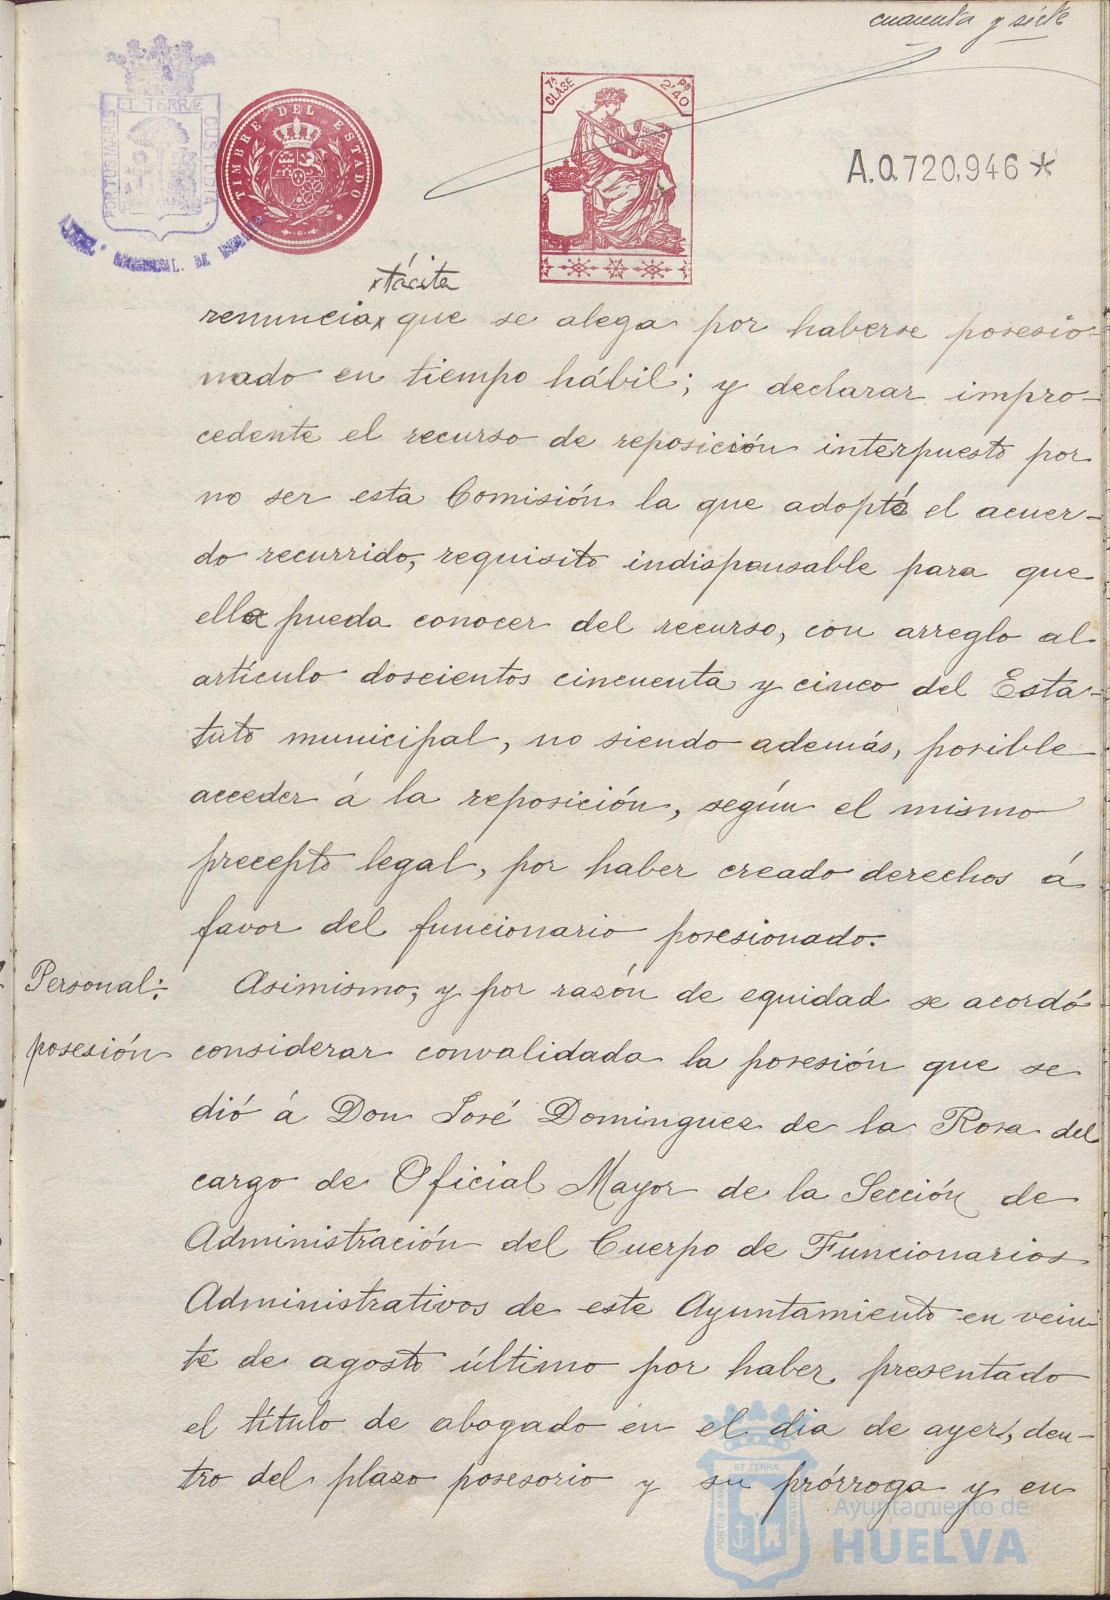 cuarenta y siete
PORTUS MARIS ET TERRÆ CUSTODIA
TIMBRE DEL ESTADO
7ª CLASE
PS 2'40
A.0.720,946*
x tácita
renuncia x que se alega por haberse posesio-
nado en tiempo hábil; y declarar impro-
cedente el recurso de reposición interpuesto por
no ser esta Comisión la que adoptó el acuer-
do recurrido, requisito indispensable para que
ella pueda conocer del recurso, con arreglo al
artículo doscientos cincuenta y cinco del Esta-
tuto municipal, no siendo además, posible
acceder á la reposición, según el mismo
precepto legal, por haber creado derechos á
favor del funcionario posesionado.
Personal:
posesión
Asimismo, y por razón de equidad se acordó
considerar convalidada la posesión que se
dió á Don José Dominguez de la Rosa del
cargo de Oficial Mayor de la Sección de
Administración del Cuerpo de Funcionarios
Administrativos de este Ayuntamiento en vein-
te de agosto último por haber presentado
el título de abogado en el dia de ayer, den-
tro del plazo posesorio y su prórroga y en
PORTUS MARIS ET TERRÆ CUSTODIA
Ayuntamiento de
HUELVA